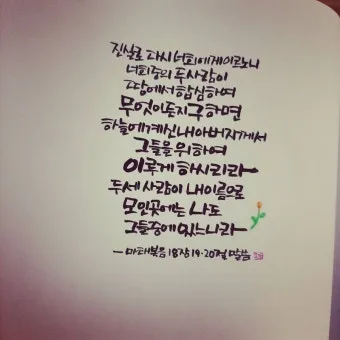 진실로 다시 너희에게 이르노니
너희 중의 두 사람이
땅에서 합심하여
무엇이든지 구하면
하늘에 계신 내 아버지께서
그들을 위하여
이루게 하시리라
두세 사람이 내 이름으로
모인 곳에는 나도
그들 중에 있느니라
-마태복음 18장 19·20절 말씀